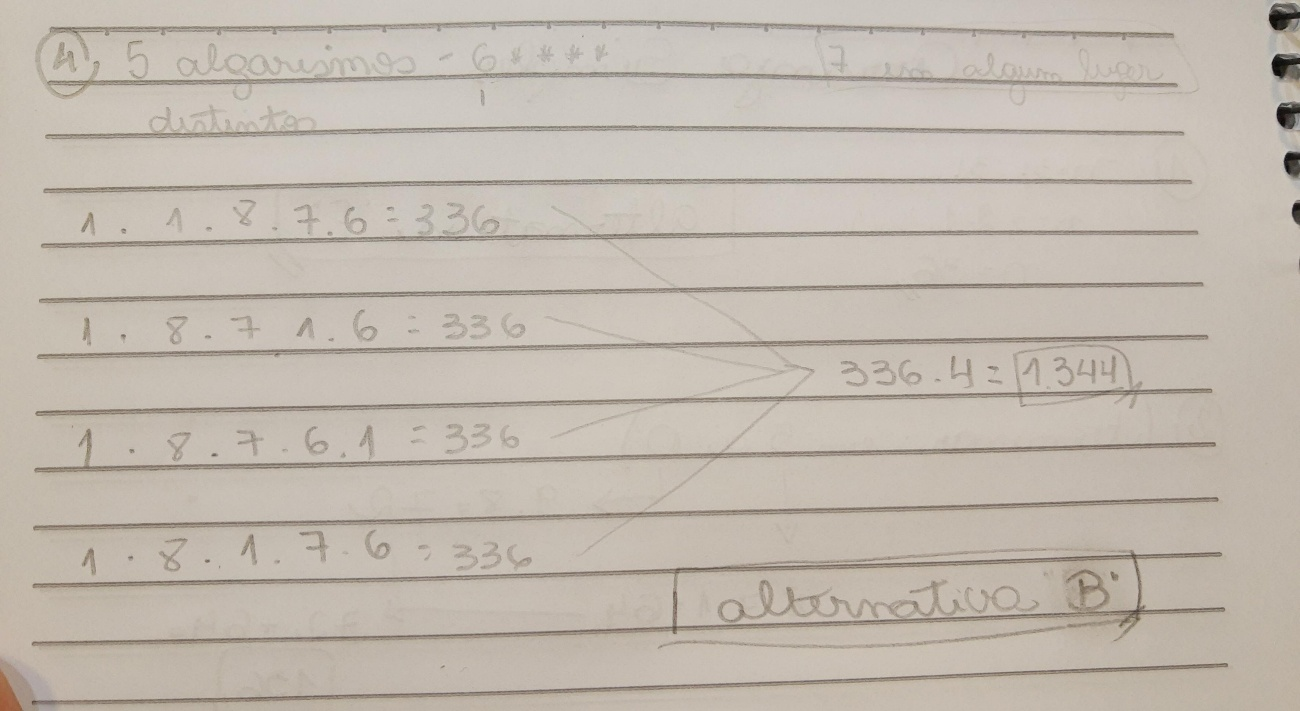 4, 5 algarismos - 6 * * * * 7 em algum lugar
distintos
1 . 1 . 8 . 7 . 6 = 336
1 . 8 . 7 1 . 6 = 336
336 . 4 = 1.344
1 . 8 . 7 . 6 . 1 = 336
1 . 8 . 1 . 7 . 6 = 336
alternativa "B"